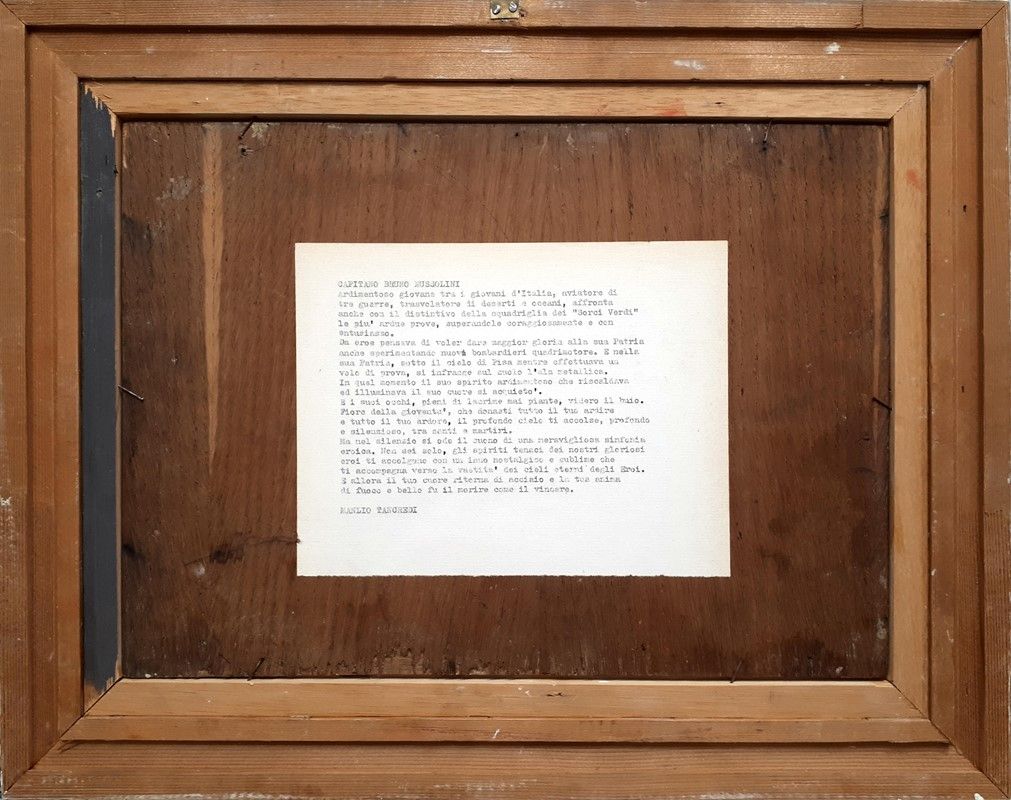 CAPITANO BRUNO MUSSOLINI
Ardimentoso giovane tra i giovani d'Italia, aviatore di
tre guerre, trasvolatore di deserti e oceani, affronta
anche con il distintivo della squadriglia dei "Sorci Verdi"
le piu' ardue prove, superandole coraggiosamente e con
entusiasmo.
Da eroe pensava di voler dare maggior gloria alla sua Patria
anche sperimentando nuovi bombardieri quadrimotore. E nella
sua Patria, sotto il cielo di Pisa mentre effettuava un
volo di prova, si infranse sul suolo l'ala metallica.
In quel momento il suo spirito ardimentoso che riscaldava
ed illuminava il suo cuore si acquieto'.
E i suoi occhi, pieni di lacrime mai piante, videro il buio.
Fiore della gioventu', che donasti tutto il tuo ardire
e tutto il tuo ardore, il profondo cielo ti accolse, profondo
e silenzioso, tra santi e martiri.
Ma nel silenzio si ode il suono di una meravigliosa sinfonia
eroica. Non sei solo, gli spiriti tenaci dei nostri gloriosi
eroi ti accolgono con un inno nostalgico e sublime che
ti accompagna verso la vastita' dei cieli eterni degli Eroi.
E allora il tuo cuore ritorna di acciaio e la tua anima
di fuoco e bello fu il morire come il vincere.
MANLIO TANCREDI